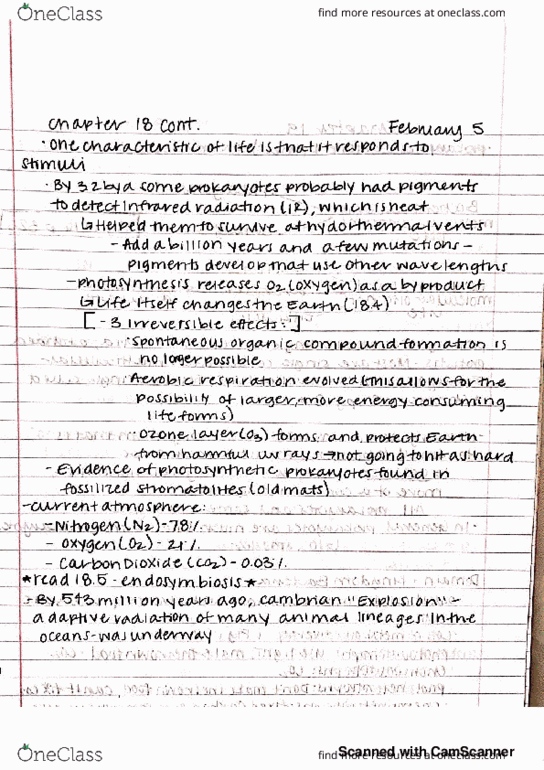 OneClass
find more resources at oneclass.com
chapter 18 cont. February 5
· One characteristic of life is that it responds to
stimuli
· By 3.2 bya some prokaryotes probably had pigments
to detect infrared radiation (IR), which is heat
↳ Helped them to survive at hydothermal vents
- Add a billion years and a few mutations -
pigments develop that use other wavelengths
- photosynthesis releases O2 (oxygen) as a byproduct
↳ Life itself changes the Earth (18.4)
[ - 3 irreversible effects: ]
· Spontaneous organic compound formation is
no longer possible
· Aerobic respiration evolved (this allows for the
possibility of larger, more energy consuming
life forms)
· Ozone layer (O3) forms and protects Earth
from harmful uv rays → not going to hit as hard
- Evidence of photosynthetic prokaryotes found in
fossilized stromatolites (old mats)
- current atmosphere:
- Nitrogen (N2) - 78%
- Oxygen (O2) - 21%
- Carbon Dioxide (CO2) - 0.03%
*read 18.5 - endosymbiosis*
- By 543 million years ago, cambrian "Explosion" -
adaptive radiation of many animal lineages in the
oceans - was underway
OneClass
find more resources at oneclass.com
Scanned with CamScanner